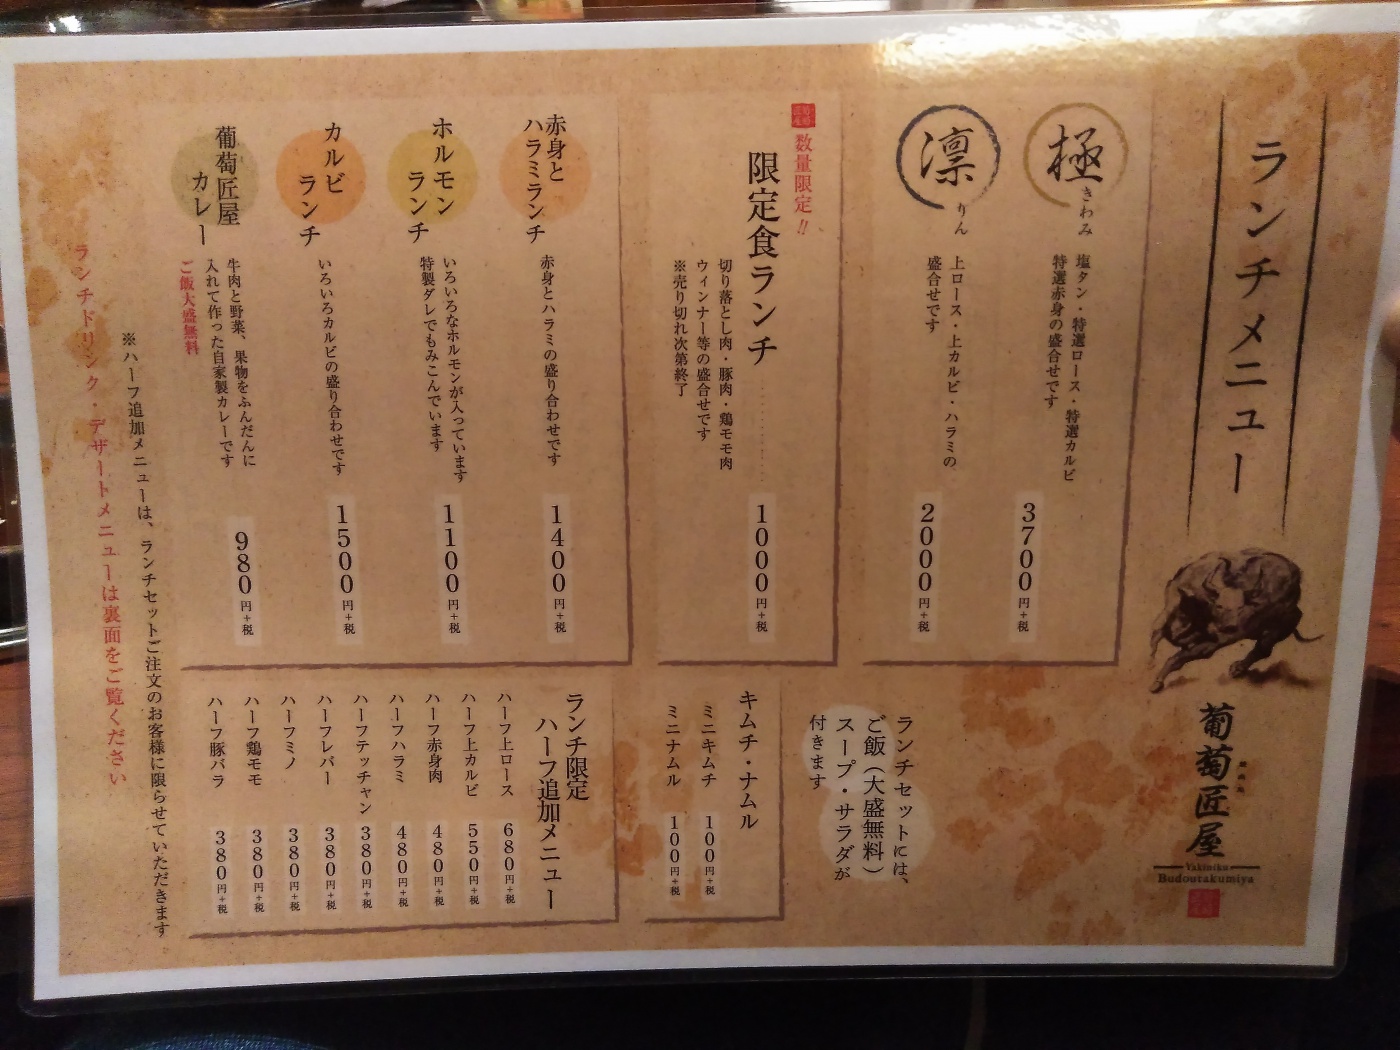 ランチメニュー
葡萄匠屋
Yakiniku
Budoutakumiya
極
きわみ
塩タン・特選ロース・特選カルビ
特選赤身の盛合せです
3700円+税
凛
りん
上ロース・上カルビ・ハラミの
盛合せです
2000円+税
ランチセットには、
ご飯(大盛無料)
スープ・サラダが
付きます
数量限定!!
限定食ランチ
切り落とし肉・豚肉・鶏モモ肉
ウィンナー等の盛合せです
※売り切れ次第終了
1000円+税
キムチ・ナムル
ミニキムチ 100円+税
ミニナムル 100円+税
赤身と
ハラミランチ
赤身とハラミの盛り合わせです
1400円+税
ホルモン
ランチ
いろいろなホルモンが入っています
特製ダレでもみこんでいます
1100円+税
カルビ
ランチ
いろいろカルビの盛り合わせです
1500円+税
葡萄匠屋
カレー
牛肉と野菜、果物をふんだんに
入れて作った自家製カレーです
ご飯大盛無料
980円+税
ランチ限定
ハーフ追加メニュー
ハーフ上ロース 680円+税
ハーフ上カルビ 550円+税
ハーフ赤身肉 480円+税
ハーフハラミ 480円+税
ハーフテッチャン 380円+税
ハーフレバー 380円+税
ハーフミノ 380円+税
ハーフ鶏モモ 380円+税
ハーフ豚バラ 380円+税
※ハーフ追加メニューは、ランチセットご注文のお客様に限らせていただきます
ランチドリンク・デザートメニューは裏面をご覧ください